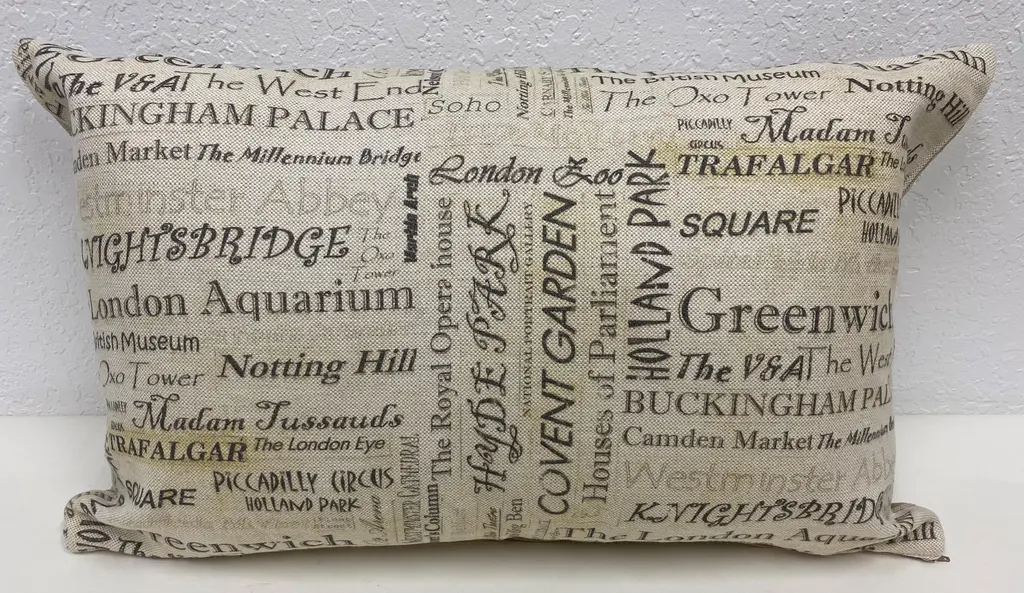 Greenwich
The V&A The West End
CKINGHAM PALACE
den Market The Millennium Bridge
estminster Abbey
NIGHTSBRIDGE
The
Oxo
Tower
Marble Arch
London Aquarium
itish Museum
Oxo Tower
Notting Hill
Madam Tussauds
TRAFALGAR The London Eye
SQUARE
PICCADILLY CIRCUS
HOLLAND PARK
Greenwich
Soho
Notting Hill
London Zoo
The Royal Opera house
HYDE PARK
NATIONAL PORTRAIT GALLERY
COVENT GARDEN
Houses of Parliament
HOLLAND PARK
s Column
Big Ben
The British Museum
The Oxo Tower
Notting Hill
PICCADILLY
CIRCUS
Madam T
TRAFALGAR The
SQUARE
PICCADIL
HOLLAN
Greenwich
The V&A The West
BUCKINGHAM PAL
Camden Market The Millennium
Westminster Abb
KNIGHTSBRID
The London Aqua